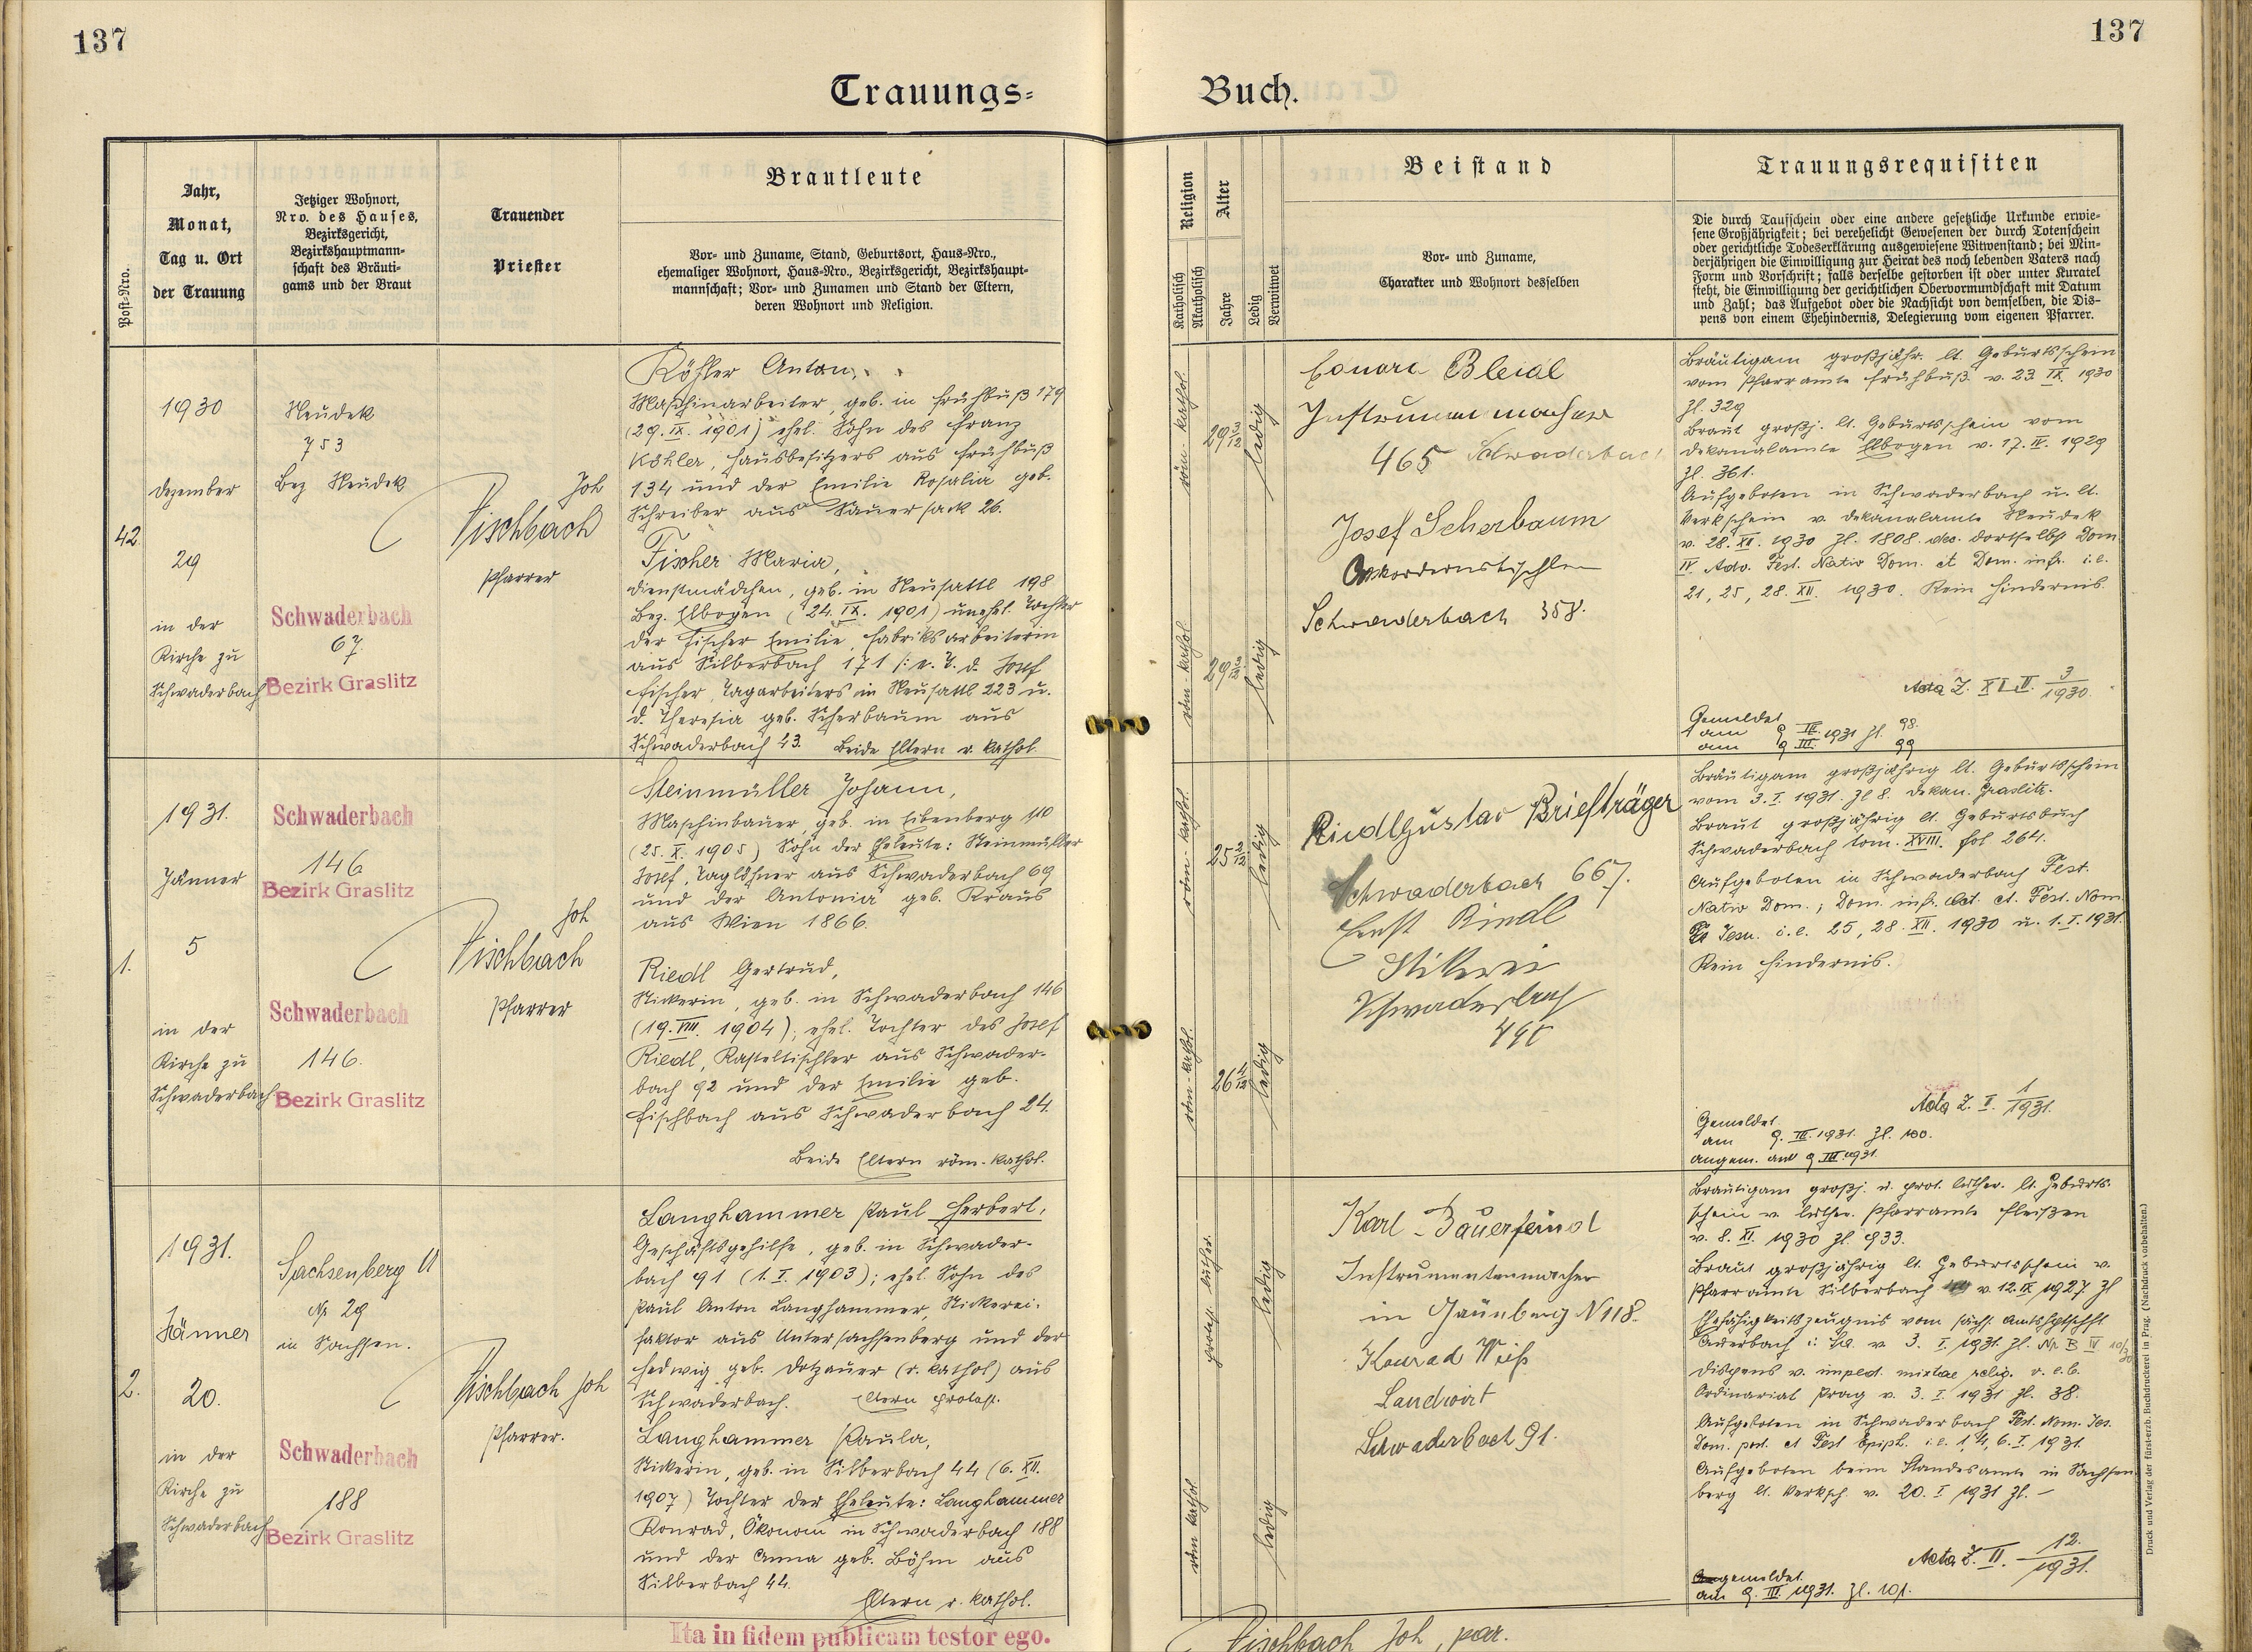 137
137
Trauungs=
Buch.
Post-Nro.
Jahr,
Monat,
Tag u. Ort
der Trauung
Jetziger Wohnort,
Nro. des Hauses,
Bezirksgericht,
Bezirkshauptmann-
schaft des Bräuti-
gams und der Braut
Trauender
Priester
Brautleute
Vor- und Zuname, Stand, Geburtsort, Haus-Nro.,
ehemaliger Wohnort, Haus-Nro., Bezirksgericht, Bezirkshaupt-
mannschaft; Vor- und Zunamen und Stand der Eltern,
deren Wohnort und Religion.
Religion
Katholisch
Akatholisch
Alter
Jahre
Ledig
Verwitwet
Beistand
Vor- und Zuname,
Charakter und Wohnort desselben
Trauungsrequisiten
Die durch Taufschein oder eine andere gesetzliche Urkunde erwie-
sene Großjährigkeit; bei verehelicht Gewesenen der durch Totenschein
oder gerichtliche Todeserklärung ausgewiesene Witwenstand; bei Min-
derjährigen die Einwilligung zur Heirat des noch lebenden Vaters nach
Form und Vorschrift; falls derselbe gestorben ist oder unter Kuratel
steht, die Einwilligung der gerichtlichen Obervormundschaft mit Datum
und Zahl; das Aufgebot oder die Nachsicht von demselben, die Dis-
pens von einem Ehehindernis, Delegierung vom eigenen Pfarrer.
42
1930
Dezember
29
in der
Kirche zu
Schwaderbach
Neudek
753
Bez Neudek
Schwaderbach
67.
Bezirk Graslitz
Joh
Fischbach
Pfarrer
Köhler Anton,
Maschinarbeiter, geb. in Frühbuß 179
(29. IX. 1901) ehel. Sohn des Franz
Köhler, Hausbesitzers aus Frühbuß
134 und der Emilie Rosalia geb.
Schreiber aus Sauersack 26.
Fischer Maria,
Dienstmädchen, geb. in Neusattl 198
Bez. Elbogen (24. IX. 1901) unehel. Tochter
der Fischer Emilie, Fabriksarbeiterin
aus Silberbach 171 /: e. T. d. Josef
Fischer, Tagarbeiters in Neusattl 223 u.
d. Theresia geb. Scherbaum aus
Schwaderbach 43. Beide Eltern r. kathol.
röm-kathol.
29 3/12
ledig
röm-kathol.
29 3/12
ledig
Eduard Bleidl
Instrumenmacher
465 Schwaderbach
Josef Scherbaum
Schwaderbach 358.
Bräutigam großjähr. lt. Geburtsschein
vom Pfarramte Frühbuß v. 23. IX. 1930
Zl. 329
Braut großj. lt. Geburtsschein vom
Dekanalamte Elbogen v. 17. IV. 1929
Zl. 361.
Aufgeboten in Schwaderbach u. lt.
Verkschein v. Dekanalamte Neudek
v. 28. XII. 1930 Zl. 1808. dortselbst Dom
IV. Adv. Fest. Nativ Dom. et Dom. infr. i.e.
21, 25, 28. XII. 1930. Kein Hindernis.
3/1930.
Gemeldet
am 9. III. 1931 Zl. 98.
am 9. III. 99
1.
1931.
Jänner
5
in der
Kirche zu
Schwaderbach
Schwaderbach
146
Bezirk Graslitz
Schwaderbach
146.
Bezirk Graslitz
Joh
Fischbach
Pfarrer
Steinmüller Johann,
Maschinbauer, geb. in Eibenberg 110
(25. X. 1905) Sohn der Eheleute: Steinmüller
Josef, Taglöhner aus Schwaderbach 69
und der Antonia geb. Kraus
aus Wien 1866.
Riedl Gertrud,
Stickerin, geb. in Schwaderbach 146
(19. VIII. 1904); ehel. Tochter des Josef
Riedl, Kasteltischler aus Schwader-
bach 92 und der Emilie geb.
Fischbach aus Schwaderbach 24.
Beide Eltern röm-kathol.
röm-kathol.
25 2/12
ledig
röm-kathol.
26 4/12
ledig
Riedl Gustav Briefträger
Schwaderbach 667.
Ernst Riedl
Schwaderbach
Bräutigam großjährig lt. Geburtsschein
vom 3. I. 1931. Zl 8. Dekan. Graslitz.
Braut großjährig lt. Geburtsbuch
Schwaderbach tom. XVIII. fol 264.
Aufgeboten in Schwaderbach Fest.
Nativ Dom.; Dom. infr. Oct. et. Fest. Nom
Jesu. i.e. 25, 28. XII. 1930 u. 1. I. 1931.
Kein Hindernis.
Acta Z. II. 1/1931.
Gemeldet
am 9. III. 1931. Zl. 100.
angem. am 9 III. 1931.
2.
1931.
Jänner
20.
in der
Kirche zu
Schwaderbach
Sachsenberg U
Nr 29
in Sachsen.
Schwaderbach
188
Bezirk Graslitz
Fischbach Joh
Pfarrer.
Langhammer Paul Herbert,
Geschäftsgehilfe, geb. in Schwader-
bach 91 (1. I. 1903); ehel. Sohn des
Paul Anton Langhammer, Stickerei-
faktor aus Untersachsenberg und der
Hedwig geb. Dotzauer (r. kathol) aus
Schwaderbach. Eltern protest.
Langhammer Paula,
Stickerin, geb. in Silberbach 44 (6. XII.
1907) Tochter der Eheleute: Langhammer
Konrad, Ökonom in Schwaderbach 188
und der Anna geb. Böhm aus
Silberbach 44.
Eltern r. kathol.
protest. luther.
ledig
röm kathol.
ledig
Karl Bauerfeindl
Instrumentenmacher
in Grünberg N 118.
Konrad Weiß
Landwirt
Schwaderbach 91.
Bräutigam großj. u. prot. luther. lt. Geburts-
schein v. luther. Pfarramte Fleißen
v. 8. XI. 1930 Zl. 933.
Braut großjährig lt. Geburtsschein v.
Pfarramte Silberbach v. 12. IX 1927 Zl
Ehefähigkeitszeugnis vom sächs. Amtshptschft
Auerbach v. 3. I. 1931. Zl. Nr. B IV 10/30
Dispens v. imped. mixtae relig. v. e.b.
Ordinariat Prag v. 3. I. 1931 Zl. 38.
Aufgeboten in Schwaderbach Fest. Nom. Jes.
Dom. post. et Fest Epiph. i.e. 1, 4, 6. I. 1931.
Aufgeboten beim Standesamte in Sachsen-
berg lt. Verksch. v. 20. I. 1931 Zl. –
Acta Z. II. 12./1931.
gemeldet
am 9. III. 1931. Zl. 101.
Ita in fidem publicam testor ego.
Fischbach Joh, par.
Druck und Verlag der fürst-erzb. Buchdruckerei in Prag. (Nachdruck vorbehalten.)